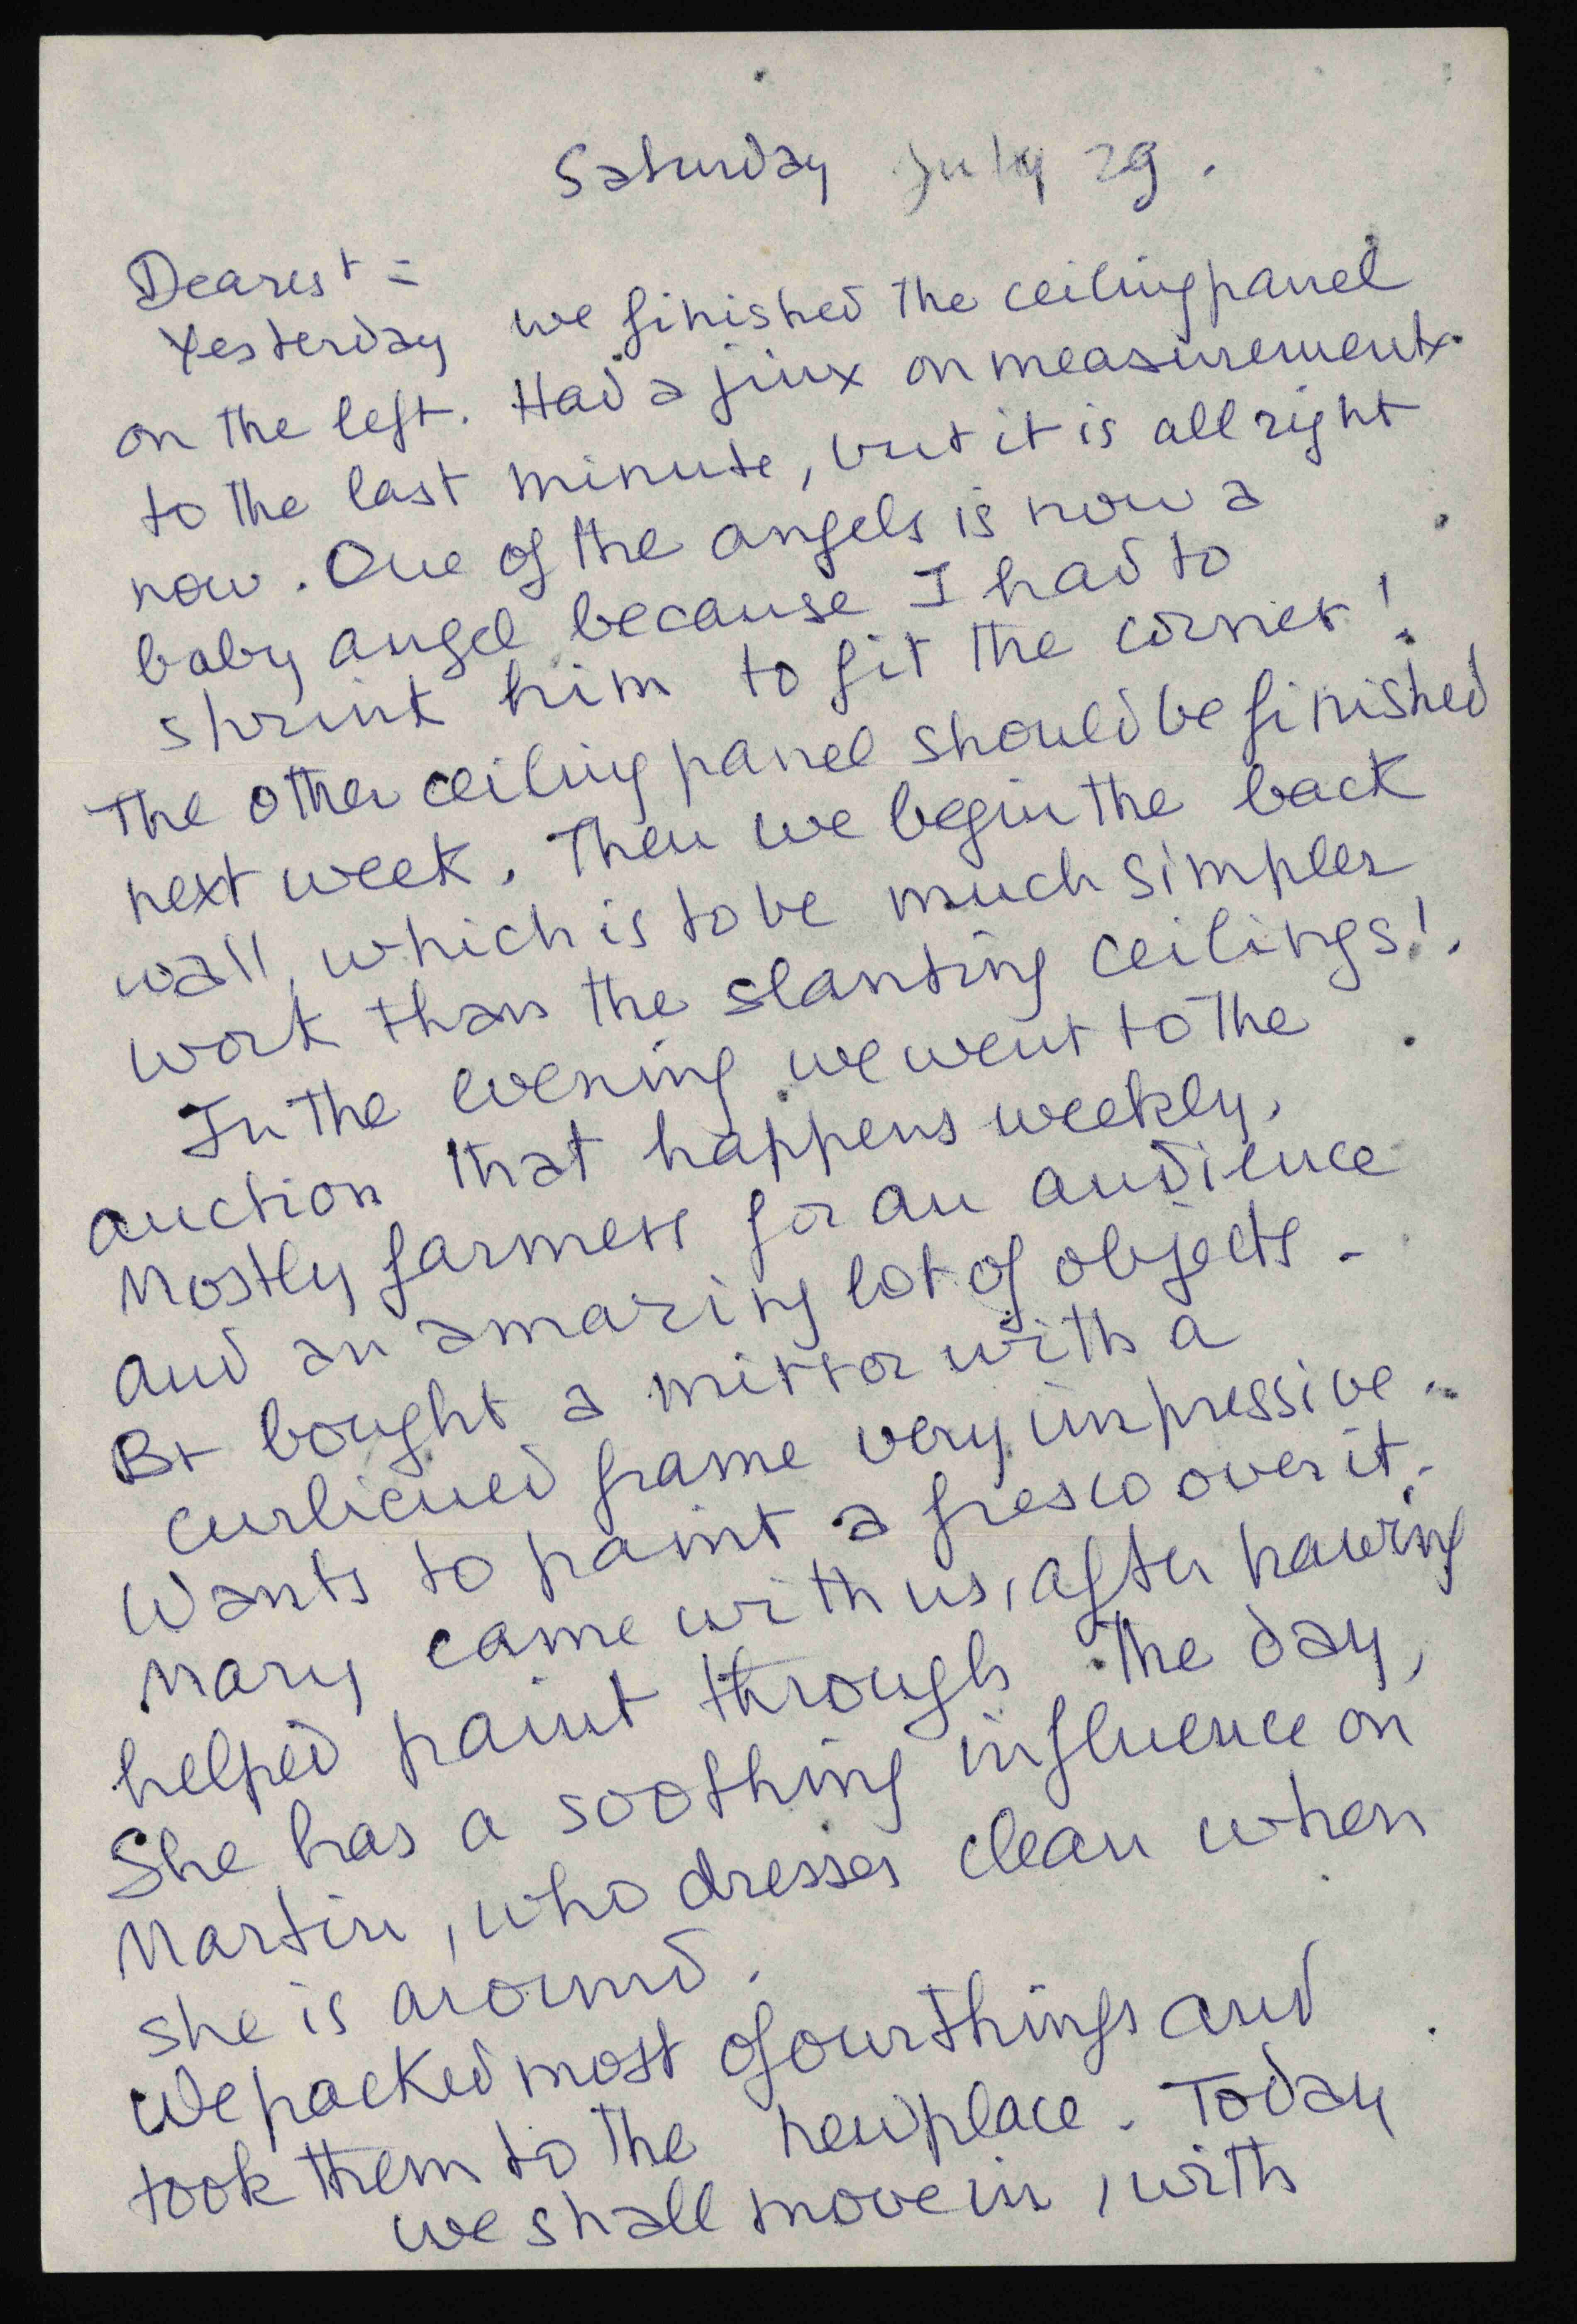 Saturday July 29.
Dearest =
Yesterday we finished the ceiling panel
on the left. Had a jinx on measurements
to the last minute, but it is all right
now. One of the angels is now a
baby angel because I had to
shrink him to fit the corner!
The other ceiling panel should be finished
next week. Then we begin the back
wall, which is to be much simpler
work than the slanting ceilings!.
In the evening we went to the
auction that happens weekly,
Mostly farmers for an audience
and an amazing lot of objects -
Br bought a mirror with a
curlicued frame very impressive.
Wants to paint a fresco over it.
Mary came with us, after having
helped paint through the day,
She has a soothing influence on
Martin, who dresses clean when
she is around.
We packed most of our things and
took them to the new place. Today
we shall move in, with